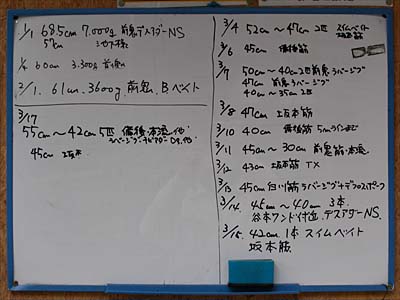 1/1 68.5cm 7,000g 前鬼デスアダーNS
57cm
1/4 60cm 3.300g 前鬼
2/1. 61cm. 3600g. 前鬼. Bベイト
3/17
55cm〜42cm 5匹 備後・本湯.他
45cm 坂本
3/4 52cm〜47cm 2匹 スイムベイト
3/6 45cm 備後筋
3/7 50cm〜40cm 2匹 前鬼ラバージグ
47cm 前鬼ラバージグ
40cm〜35cm 2匹
3/8 47cm 坂本筋
3/10 40cm 備後筋 5mラインまで
3/11 45cm〜30cm 前鬼筋
3/12 43cm 坂本筋 TX
3/13 45cm 白川筋 ラバージグ
3/14. 45cm〜40cm 3本
谷本ワンド付近. デスアダーNS.
3/15. 42cm 1本 スイムベイト
坂本筋